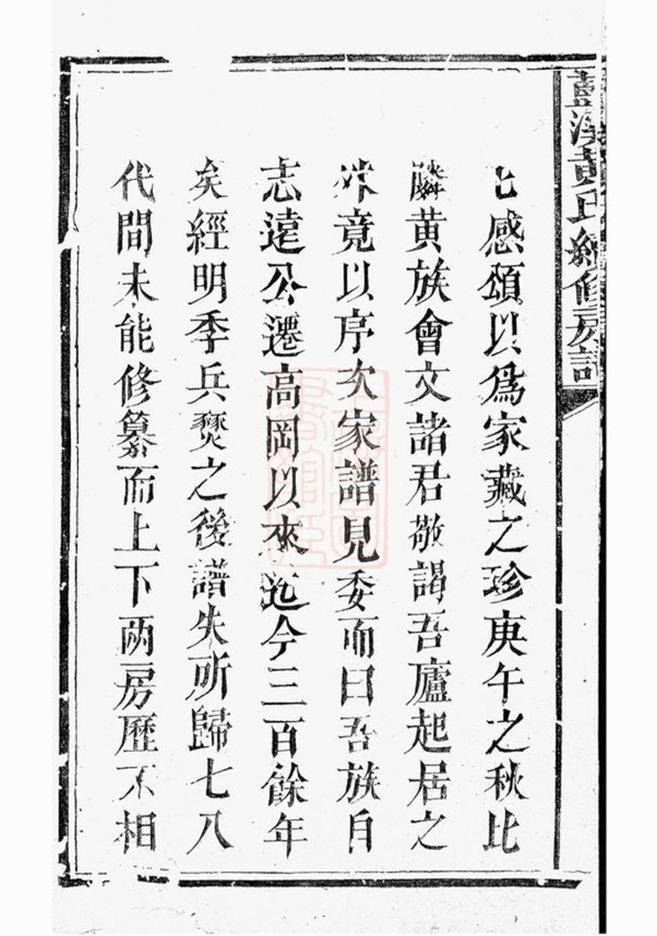 彭溪黃氏續修房譜
七感頌以爲家藏之珍庚午之秋比
隣黃族會文諸君敬謁吾廬起居之
次竟以序次家譜見委而曰吾族自
志遠公遷高岡以來迄今三百餘年
矣經明季兵燹之後譜失所歸七八
代間未能修纂而上下兩房歷不相